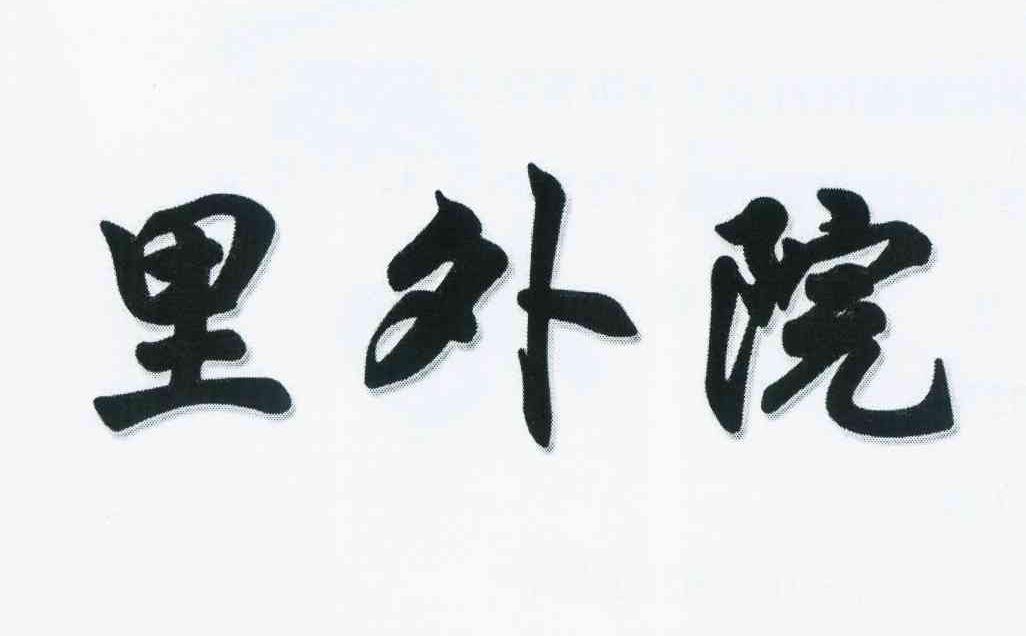 里外院